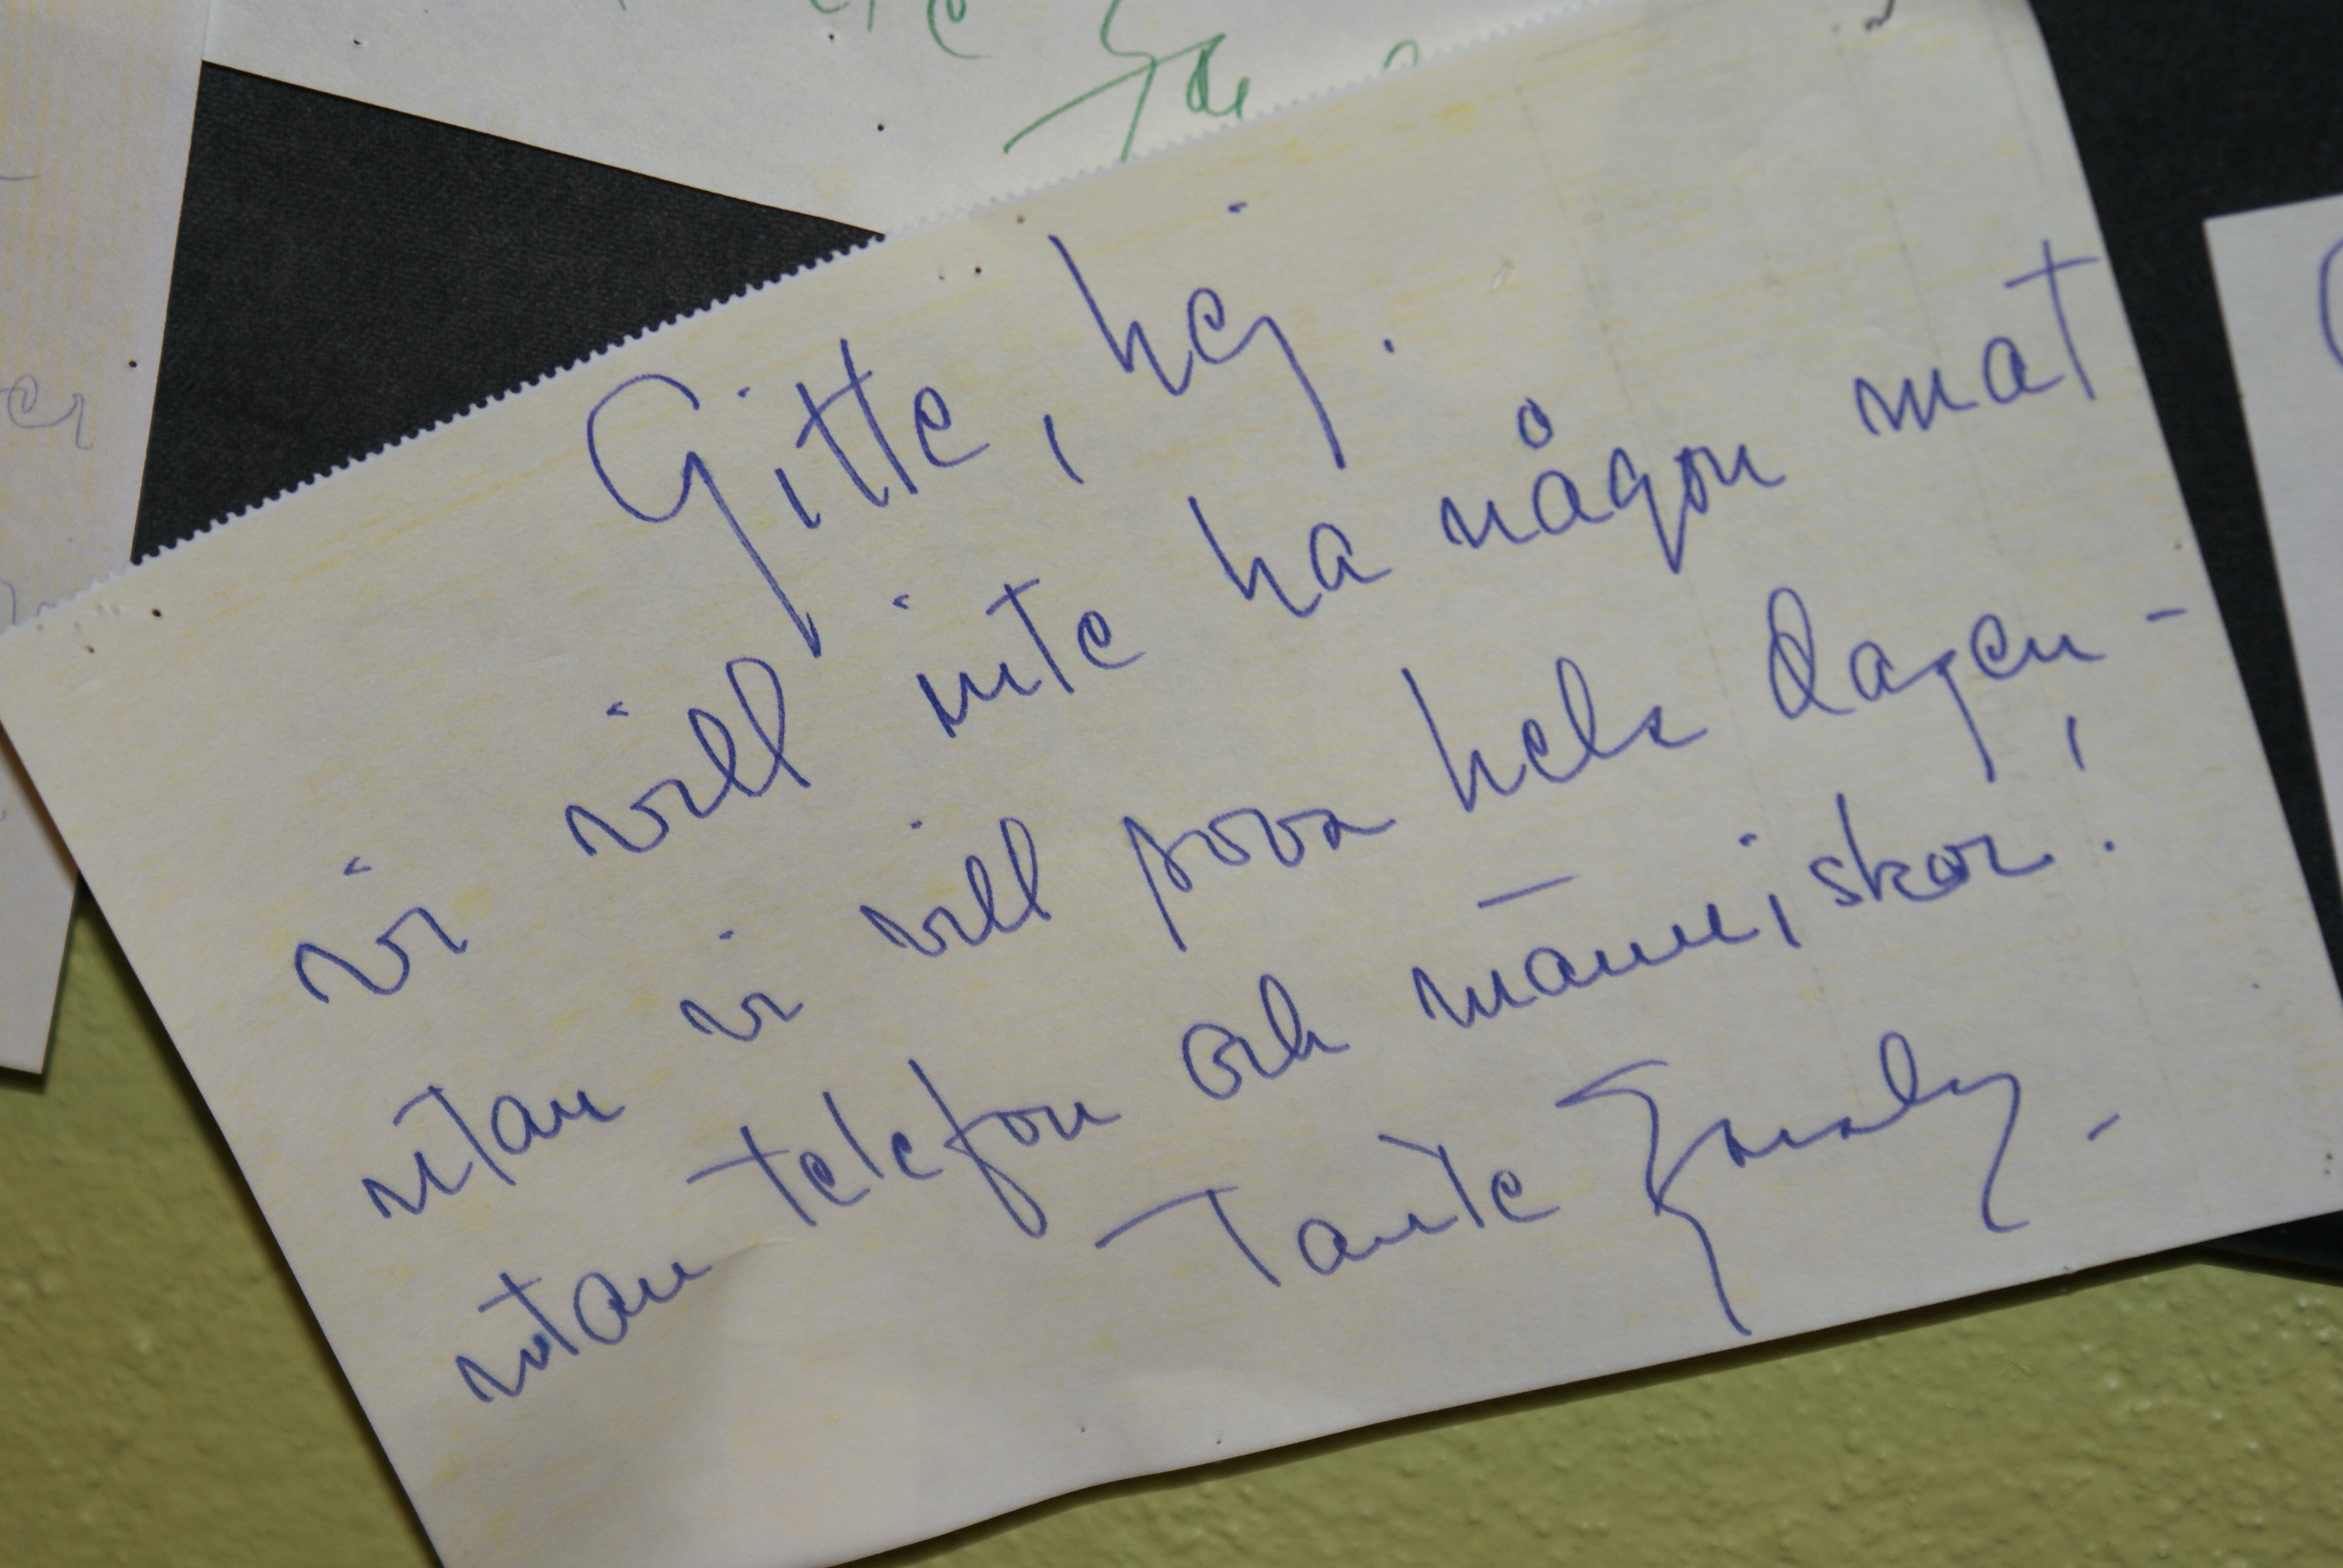 Gitte, hej.
vi vill inte ha någon mat
utan vi vill sova hela dagen -
utan telefon och människor!
Tante